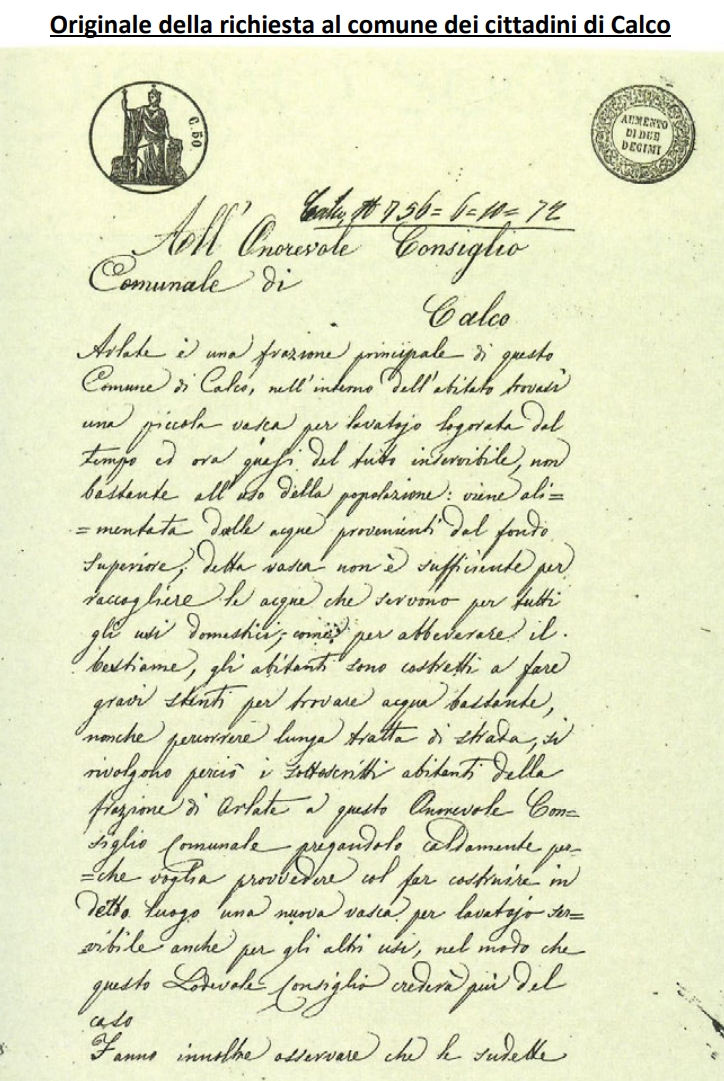 Originale della richiesta al comune dei cittadini di Calco
C. 50
AUMENTO
DI DUE
DECIMI
Calco, N 756 = 6 = 10 = 72
All' Onorevole Consiglio
Comunale di
Calco
Arlate è una frazione principale di questo
Comune di Calco, nell'interno dell'abitato trovasi
una piccola vasca per lavatojo logorata dal
tempo ed ora quasi del tutto inservibile, non
bastante all'uso della popolazione: viene ali=
=mentata dalle acque provenienti dal fondo
superiore; detta vasca non è sufficiente per
raccogliere le acque che servono per tutti
gli usi domestici, come per abbeverare il
bestiame, gli abitanti sono costretti a fare
gravi stenti per trovare acqua bastante,
nonche percorrere lunga tratta di strada, si
rivolgono perciò i sottoscritti abitanti della
frazione di Arlate a questo Onorevole Con=
siglio Comunale pregandolo caldamente per=
=che voglia provvedere col far costruire in
detto luogo una nuova vasca per lavatojo ser=
vibile anche per gli altri usi, nel modo che
questo Lodevole Consiglio crederà più del
caso
Fanno innoltre osservare che le sudette